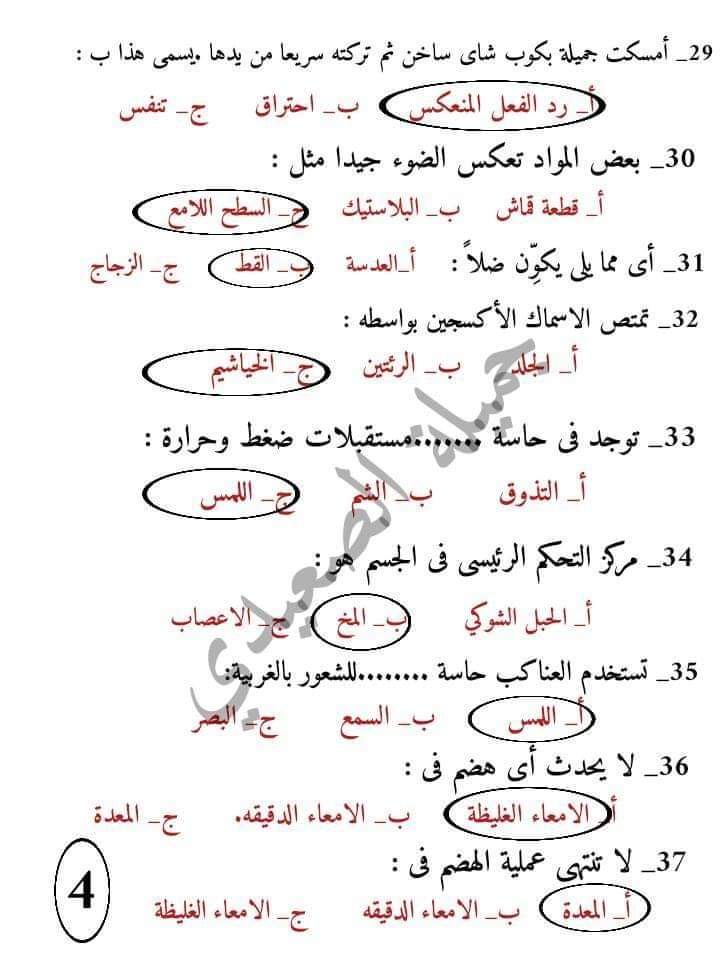 29_ أمسكت جميلة بكوب شاى ساخن ثم تركته سريعا من يدها .يسمى هذا ب :
أ_ رد الفعل المنعكس ب_ احتراق ج_ تنفس
30_ بعض المواد تعكس الضوء جيدا مثل :
أ_ قطعة قماش ب_ البلاستيك ج_ السطح اللامع
31_ أى مما يلى يكوِّن ضلاً : أ_العدسة ب_ القط ج_ الزجاج
32_ تمتص الاسماك الأكسجين بواسطه :
أ_ الجلد ب_ الرئتين ج_ الخياشيم
33_ توجد فى حاسة .......مستقبلات ضغط وحرارة :
أ_ التذوق ب_ الشم ج_ اللمس
34_ مركز التحكم الرئيسى فى الجسم هو :
أ_ الحبل الشوكي ب_ المخ ج_ الاعصاب
35_ تستخدم العناكب حاسة ........للشعور بالغربية:
أ_ اللمس ب_ السمع ج_ البصر
36_ لا يحدث أى هضم فى :
أ_ الامعاء الغليظة ب_ الامعاء الدقيقه. ج_ المعدة
37_ لا تنتهى عملية الهضم فى :
أ_ المعدة ب_ الامعاء الدقيقه ج_ الامعاء الغليظة
4
جميلة الصعيدي